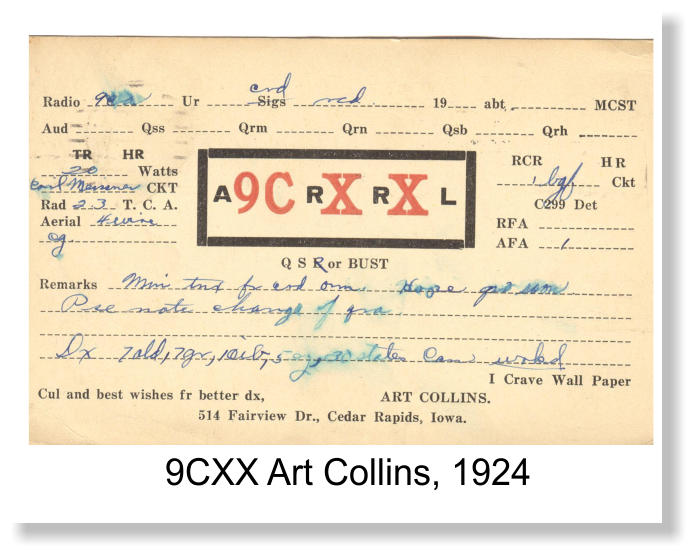 crd
Radio 9 Ur Sigs rcd. 19 abt, MCST
Aud Qss Qrm Qrn Qsb Qrh
TR HR
20 Watts
CKT
Rad 2.3 T. C. A.
Aerial 4 wire
cg.
A9C RX RX L
RCR HR
1 bgf Ckt
C299 Det
RFA
AFA 1
Q S R or BUST
Remarks Mni tnx fr crd om. Hope
Pse note change of qra
Dx 7ald, 7gr, states Can wrkd
I Crave Wall Paper
Cul and best wishes fr better dx, ART COLLINS.
514 Fairview Dr., Cedar Rapids, Iowa.
9CXX Art Collins, 1924